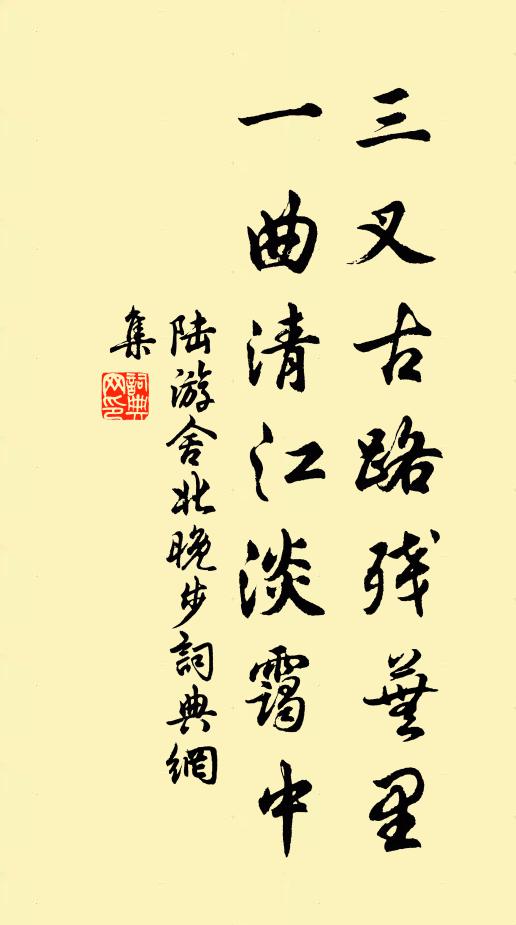 三叉古路残蕪里
一曲清江淡靄中
陆游舍北晚步詞典網
集
詞典网印